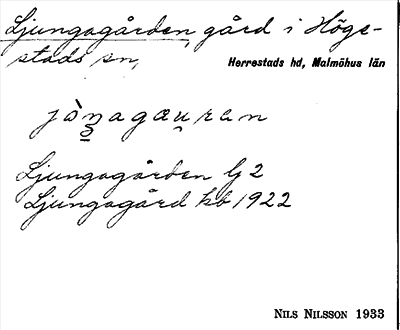 Ljungagården, gård i Höge-
stads sn, Herrestads hd, Malmöhus län
Ljungagården G 2
Ljungagård kb 1922
NILS NILSSON 1933